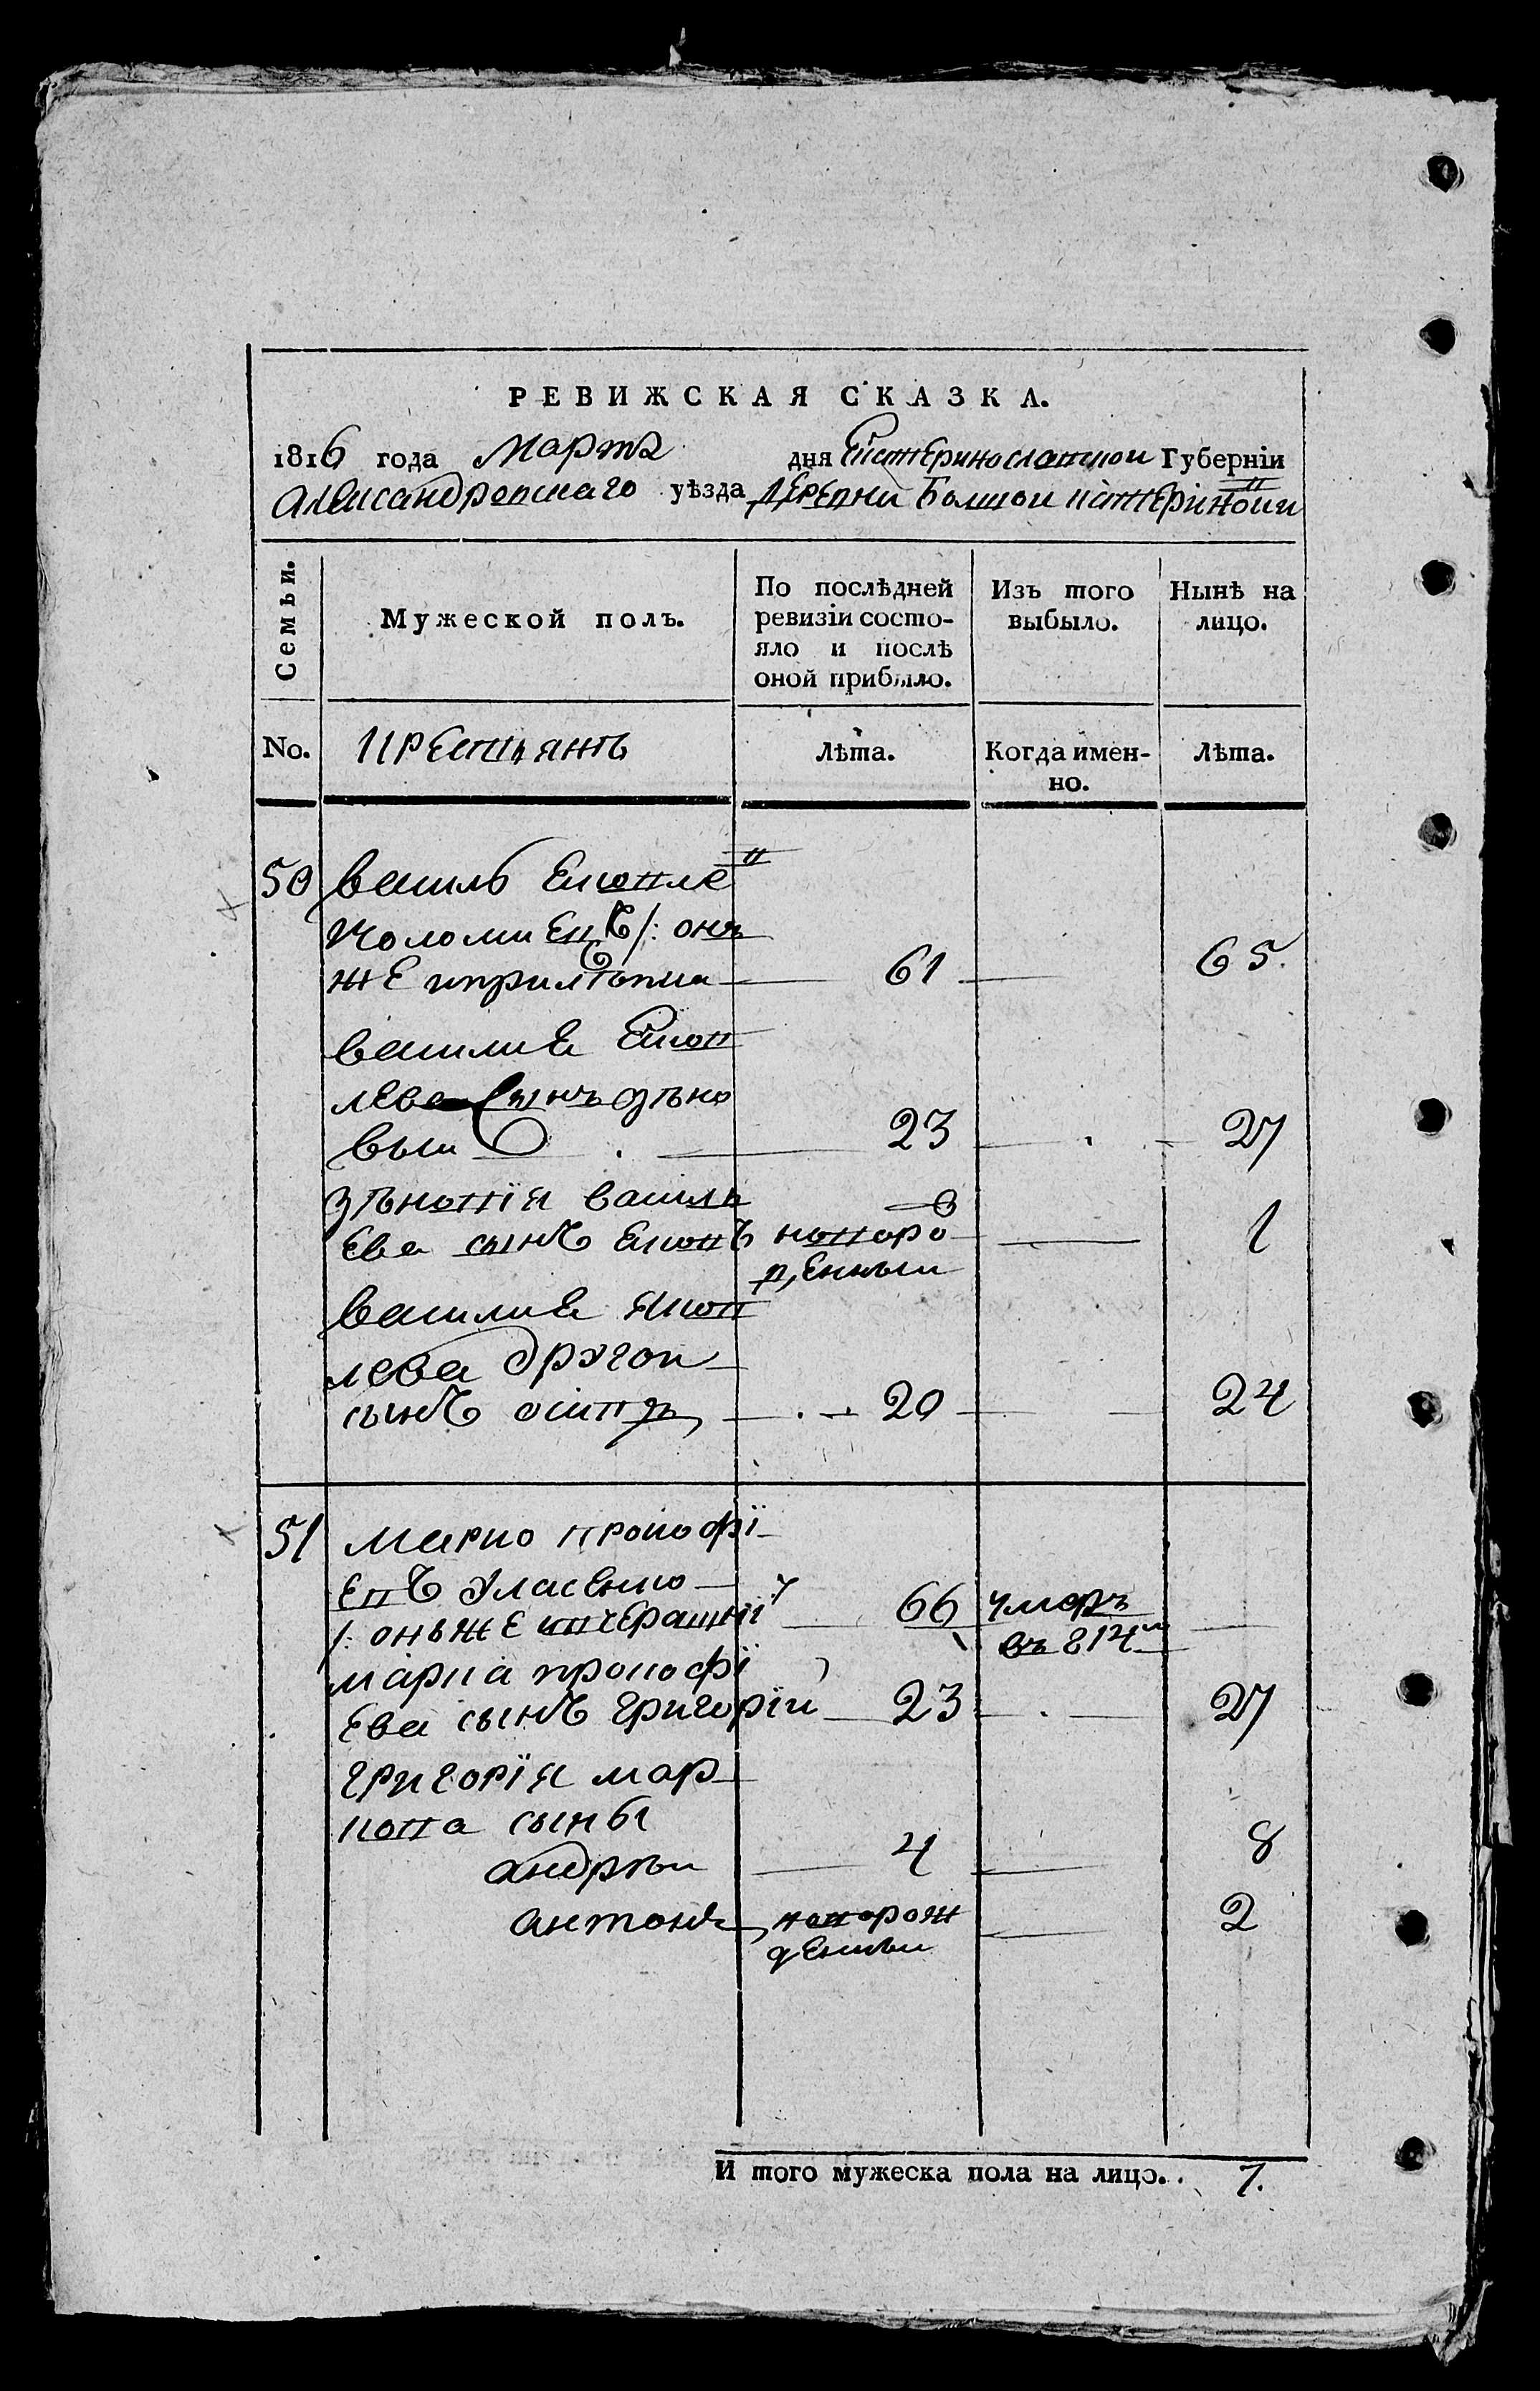 РЕВИЖСКАЯ СКАЗКА.
1816 года Марта дня Екатеринославской Губерніи
Александровскаго уѣзда деревни Большой катериновки
Семьи.
Мужеской полъ.
По послѣдней ревизіи состояло и послѣ оной прибыло.
Изъ того выбыло.
Нынѣ на лицо.
No.
крестьянъ
Лѣта.
Когда именно.
Лѣта.
50 василь яковле
коломиецъ /: онъ
же 61 65.
василия яков
лева сынъ зѣно
вый 23 27
зѣновія василь
ева сынъ яковъ новоро 1
жденный
василия яков
лева другои
сынъ осипъ 20 24
51 марко прокофі
евъ уласенко
/: онъ же 66 умеръ
въ 814м
марка прокофі
ева сынъ григорій 23 27
григорія мар
кова сыны
андрѣй 4 8
антонъ новорож 2
денный
И того мужеска пола на лицо.. 7.